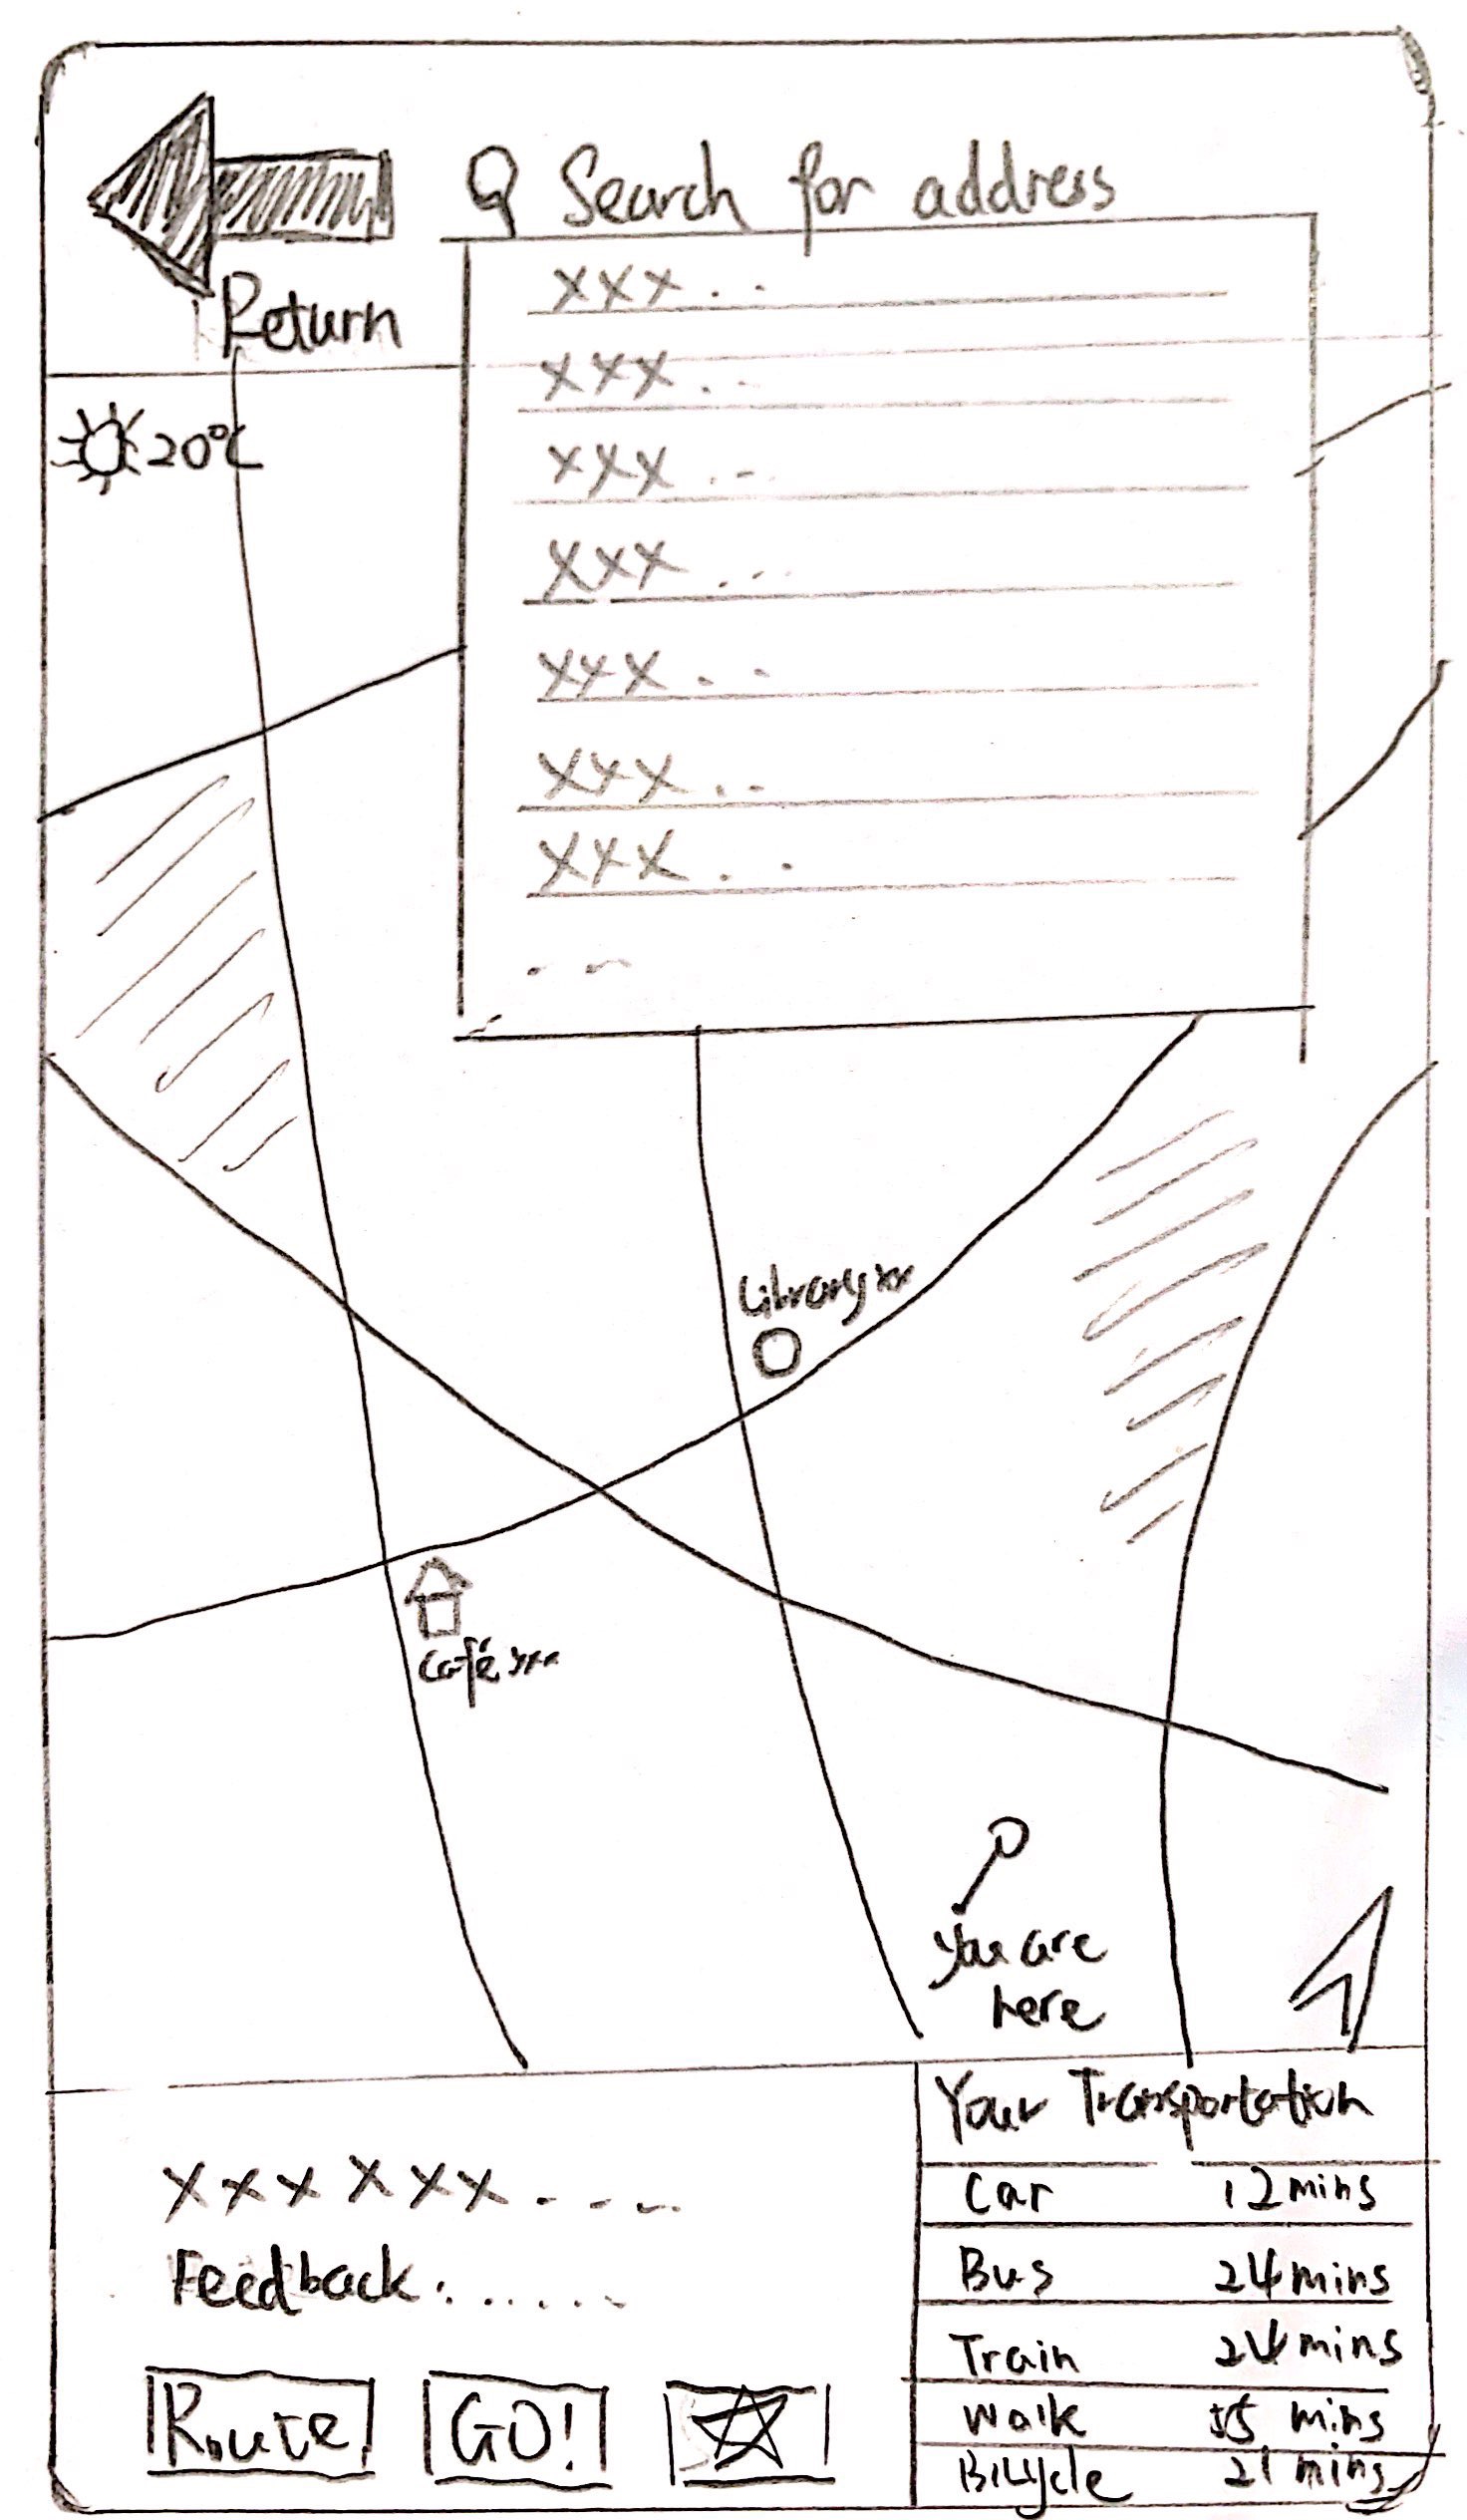 Search for address
Return
xxx...
xxx...
xxx...
xxx...
xxx...
xxx...
xxx...
20°C
Library xx
Café xxx
you are
here
xxx xxx....
Feedback:......
Route
GO!
Your Transportation
Car 12 mins
Bus 24 mins
Train 24 mins
Walk mins
Bicycle 21 mins